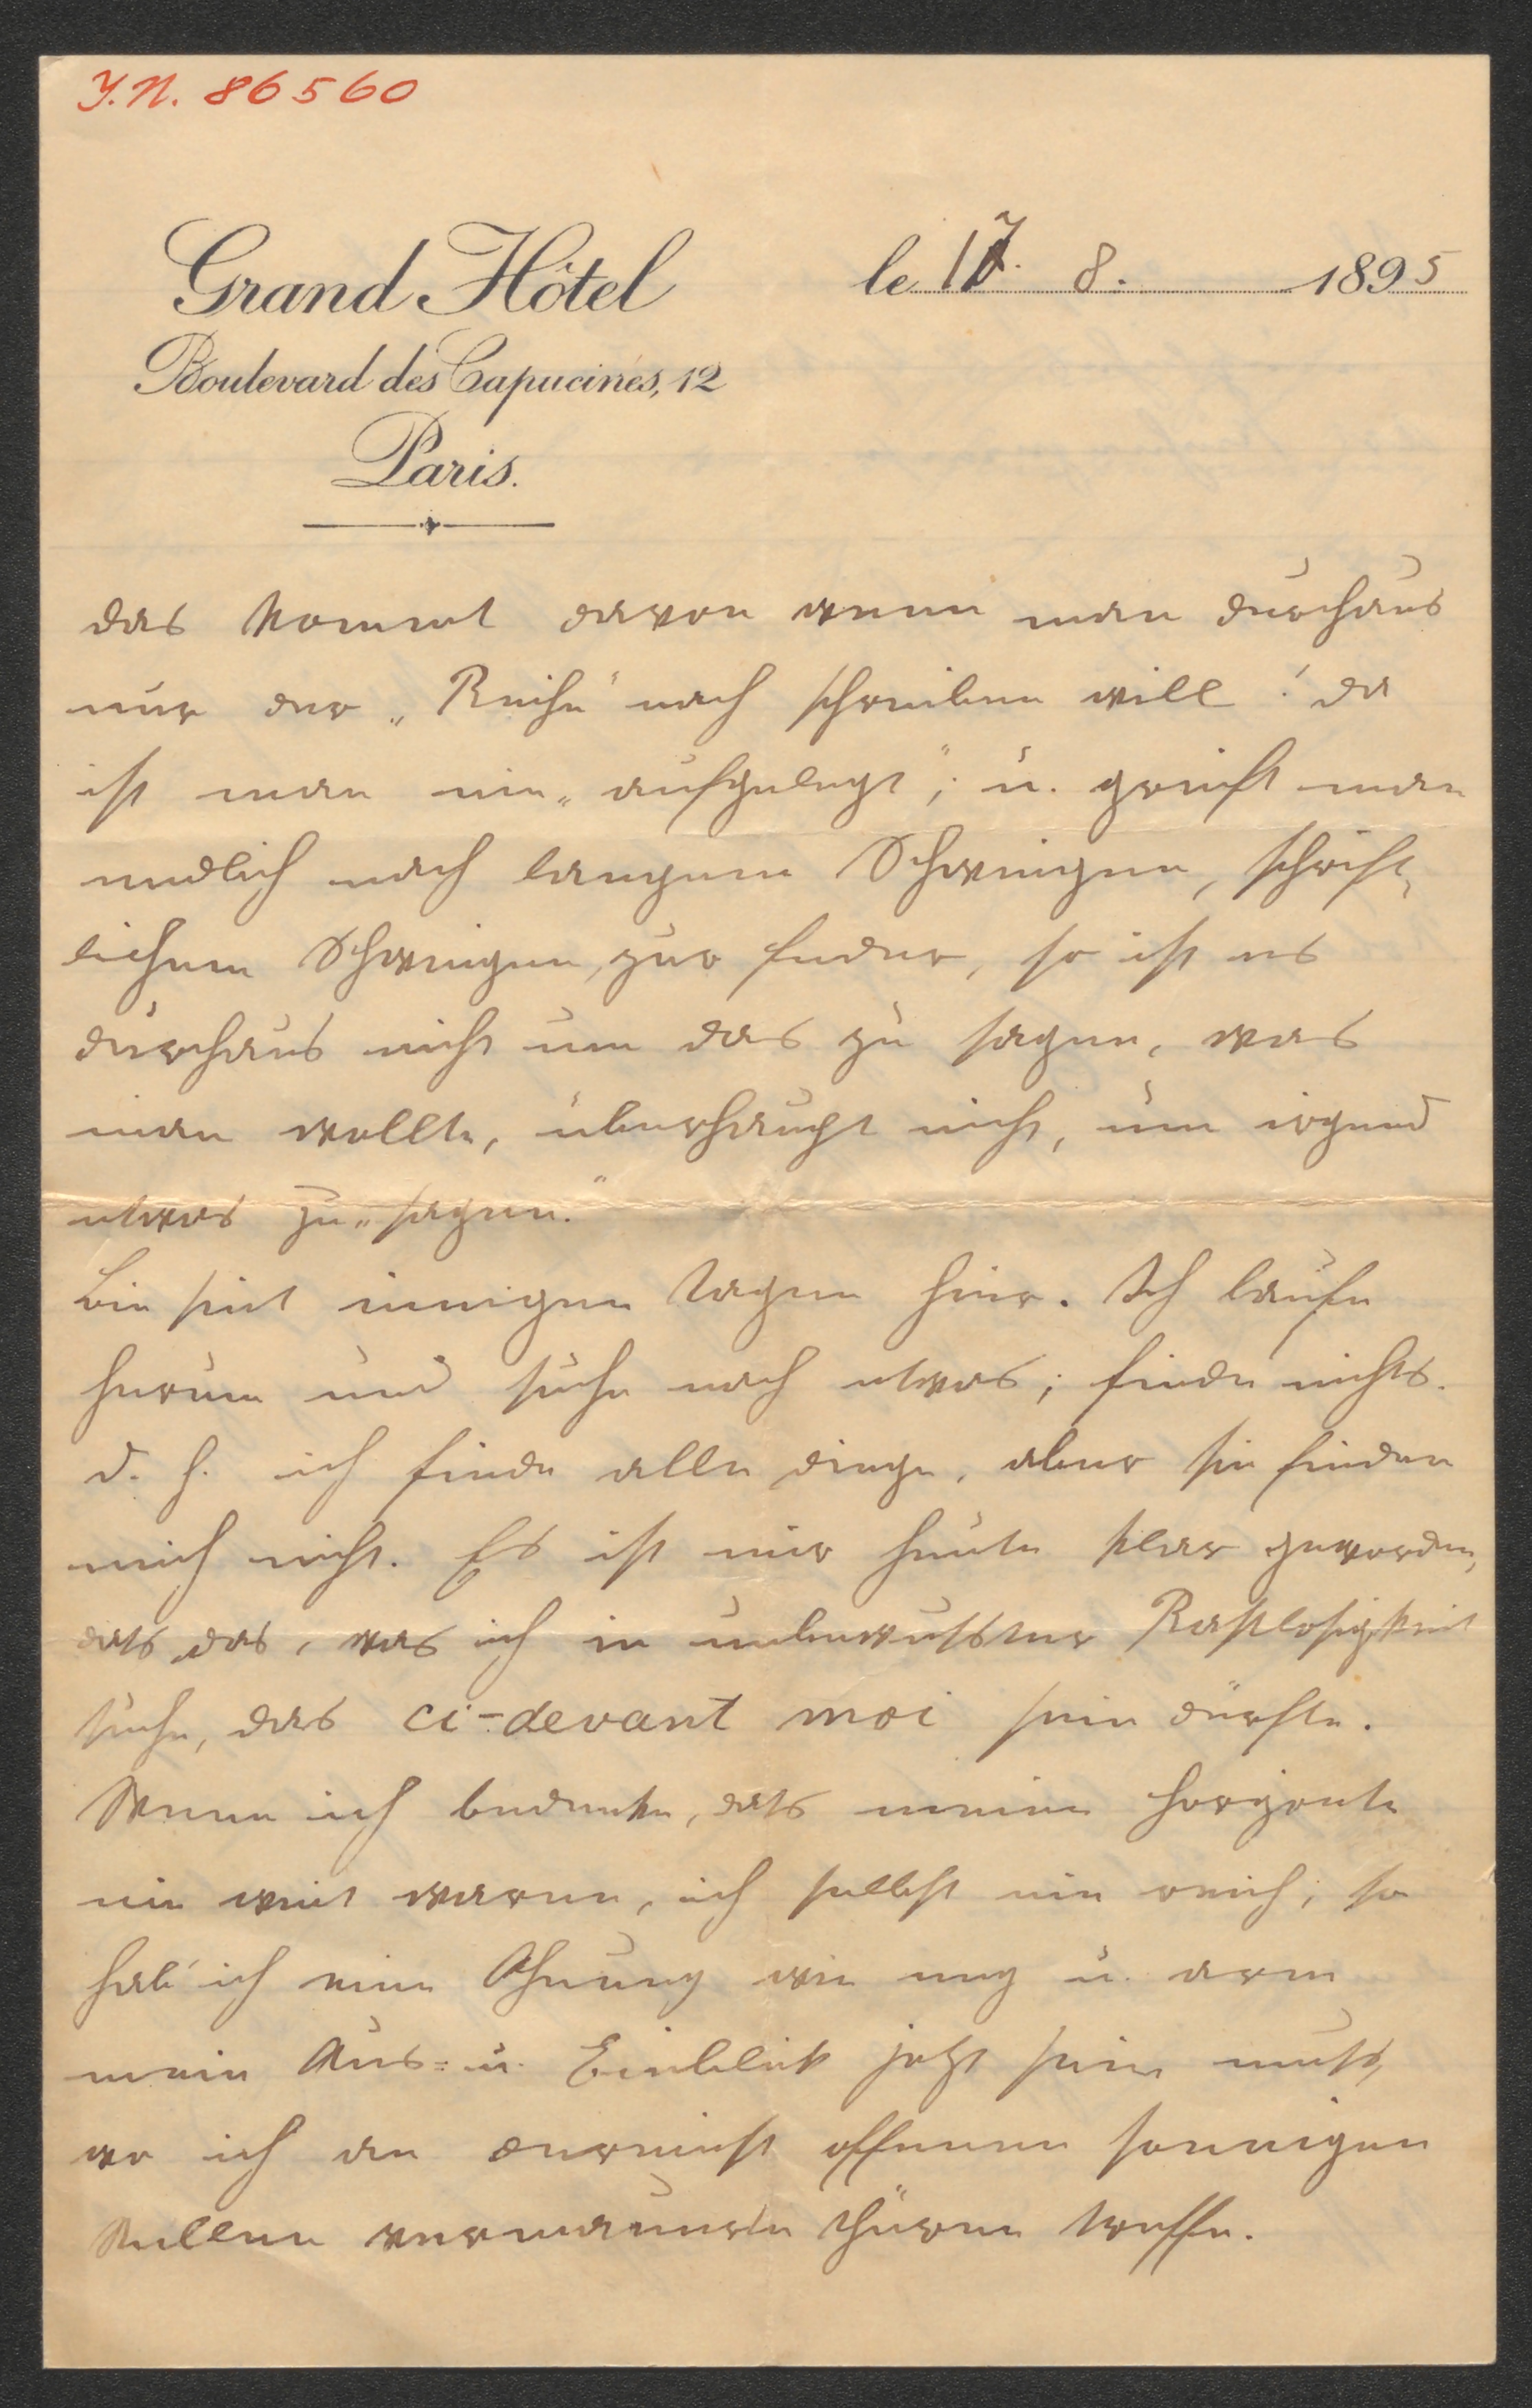 J.N. 86560
Grand Hôtel
Boulevard des Capucines, 12
Paris.
le 17. 8. 1895
das kommt davon wenn man durchaus
nur der „Reihe“ nach schreiben will! da
ist man nie „aufgelegt“; u. greift man
endlich nach langem Schweigen, schrift-
lichem Schweigen, zur Feder, so ist es
durchaus nicht um das zu sagen, was
man wollte, überhaupt nicht, um irgend
etwas zu „sagen.“
Bin seit einigen Tagen hier. Ich laufe
herum und suche nach etwas; finde nichts.
d. h. ich finde alle Dinge, aber sie finden
mich nicht. Es ist mir heute klar geworden,
dass das, was ich in unbewusster Rastlosigkeit
suche, das ci-devant moi sein dürfte.
Wenn ich bedenke, dass meine Horizonte
nie weit waren, ich selbst nie reich; so
hab' ich eine Ahnung wie eng u. arm
mein Aus- u. Einblick jetzt sein muss,
wo ich an dereinst offenen sonnigen
Stellen vermauerte Thüren treffe.